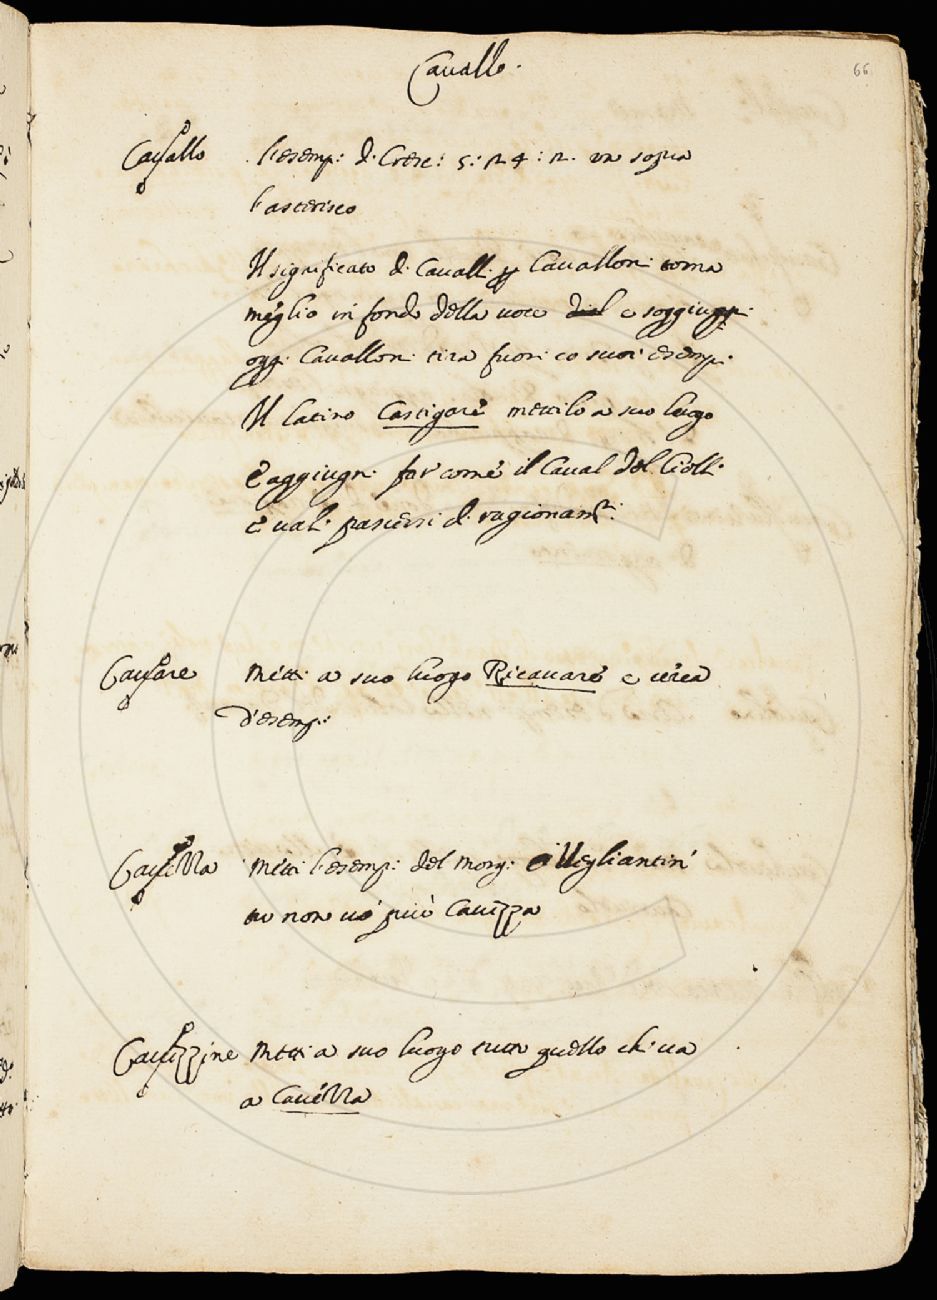 Cavallo.
66
Cavallo l'esemp: di Cresc: 5: 12 4: 12. un sopra
l'asterisco
Il significato di Cavall: Cavalloni torna
meglio in fondo della voce e soggiugn:
oggi Cavalloni tira fuori co suoi esemp.
Il latino Castigare mettilo a suo luogo
E aggiugni far come il Caval del Cioll:
e val: pascersi di ragionamti:
Cavare Metti a suo luogo Ricavare e cerca
d'esemp:
Cavezza metti l'esemp: del Morg: Vegliantin
tu non vo' più Cavezza
Cavezzine Metti a suo luogo tutto quello che va
a Cavezza